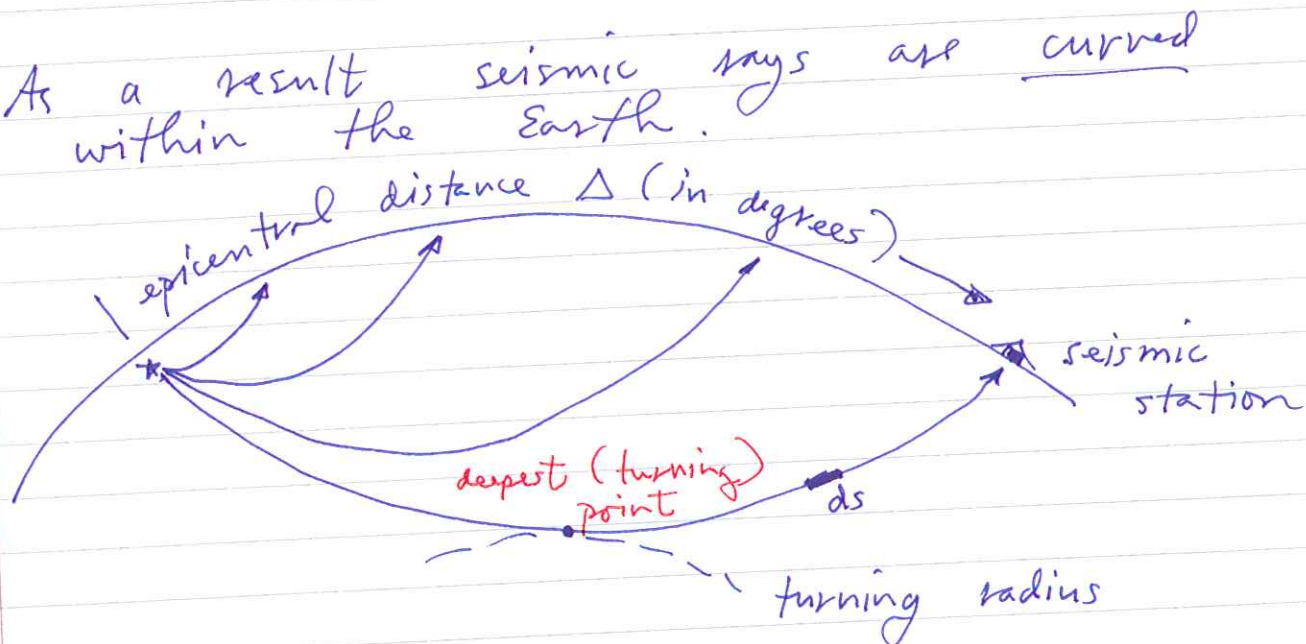 As a result seismic rays are curved
within the Earth.
epicentral distance Δ (in degrees)
seismic
station
deepest (turning)
point
ds
turning radius